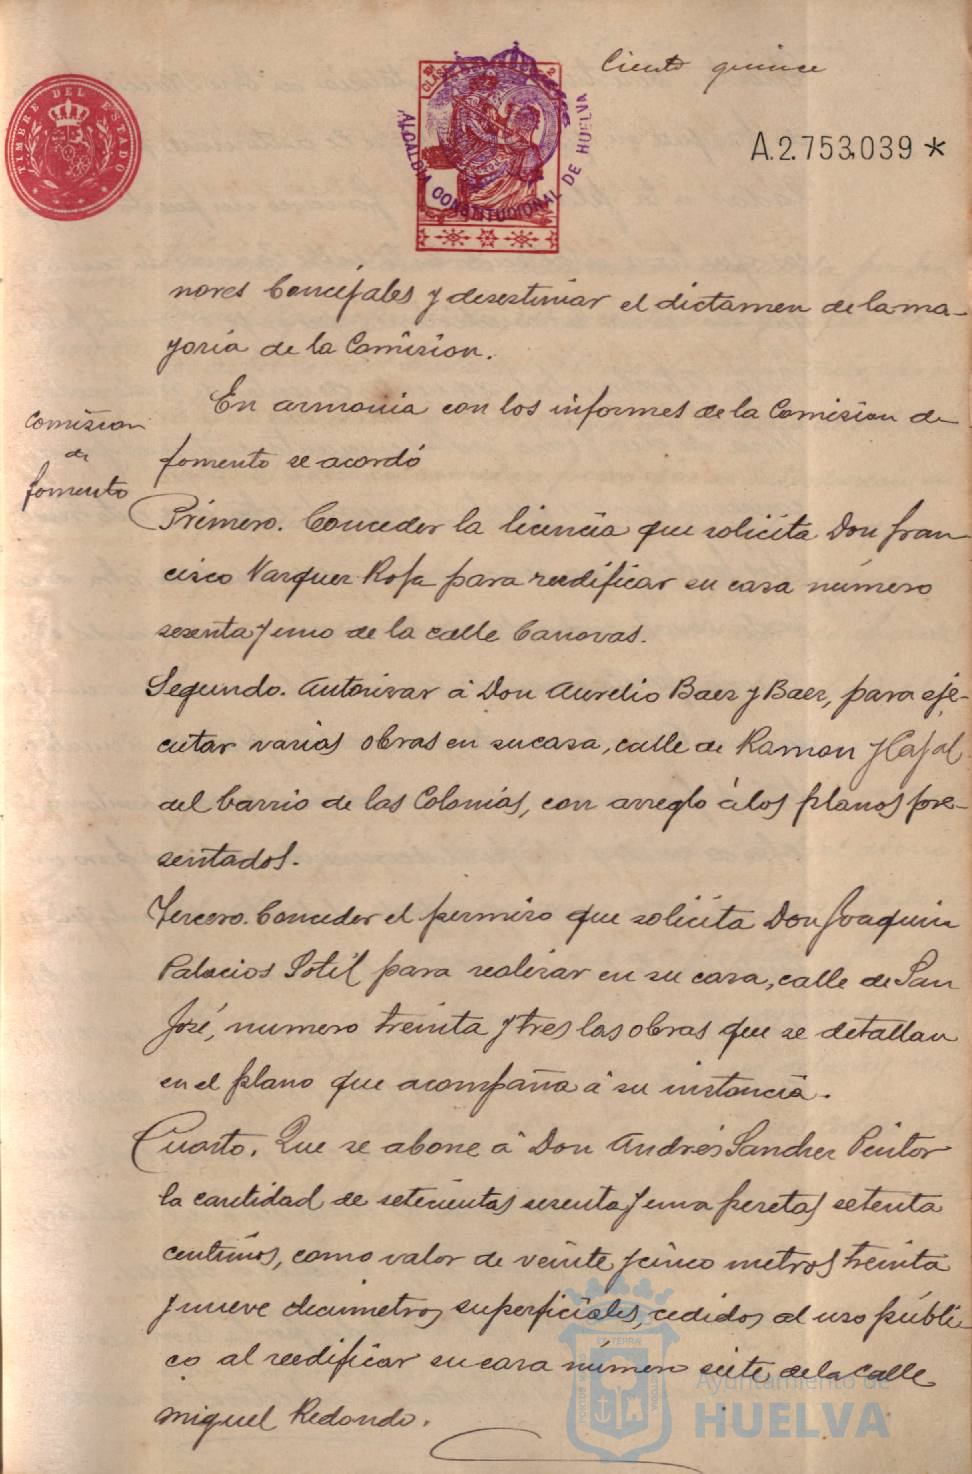 Ciento quince
TIMBRE DEL ESTADO
CLASE
ALCALDIA CONSTITUCIONAL DE HUELVA
A.2.753.039 *
nores Concejales y desestimar el dictamen de la ma-
yoria de la Comision.
En armonia con los informes de la Comision de
fomento se acordó
Comision
de
fomento
Primero. Conceder la licencia que solicita Don Fran
cisco Vazquez Rofa para reedificar su casa número
sesenta y uno de la calle Canovas.
Segundo. Autorizar á Don Aurelio Baez y Baez, para eje-
cutar varias obras en su casa, calle de Ramon y Cajal
del barrio de las Colonias, con arreglo á los planos pre-
sentados.
Tercero. Conceder el permiso que solicita Don Joaquin
Palacios Sotil para realizar en su casa, calle de San
José, numero treinta y tres las obras que se detallan
en el plano que acompaña á su instancia.
Cuarto. Que se abone á Don Andrés Sanchez Pintor
la cantidad de setecientas sesenta y una pesetas setenta
centimos, como valor de veinte y cinco metros treinta
y nueve decimetros superficiales, cedidos al uso públi-
co al reedificar su casa número siete de la calle
Miguel Redondo.
Ayuntamiento de
HUELVA